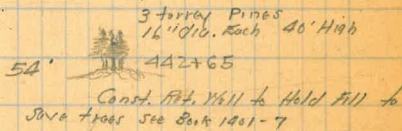 3 torrey Pines
16" dia. Each 40' High
54'
442+65
Const. Ret. Wall to Hold Fill to
Save trees see Book 1401-7